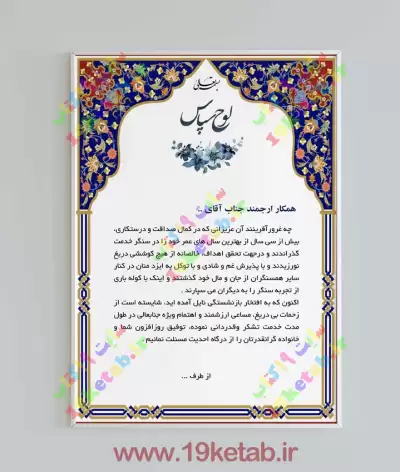 بسمه تعالی
لوح سپاس
همکار ارجمند جناب آقای ..
چه غرورآفرینند آن عزیزانی که در کمال صداقت و درستکاری،
بیش از سی سال از بهترین سال های عمر خود را در سنگر خدمت
گذراندند و درجهت تحقق اهداف، خالصانه از هیچ کوششی دریغ
نورزیدند و با پذیرش غم و شادی و با توکل به ایزد منان در کنار
سایر همسنگران از جان و مال خود گذشتند و اینک با کوله باری
از تجربه سنگر را به دیگران می سپارند .
اکنون که به افتخار بازنشستگی نایل آمده اید، شایسته است از
زحمات بی دریغ، مساعی ارزشمند و اهتمام ویژه جنابعالی در طول
مدت خدمت تشکر وقدردانی نموده، توفیق روزافزون شما و
خانواده گرانقدرتان را از درگاه احدیت مسئلت نمائیم .
از طرف ...
www.19ketab.ir